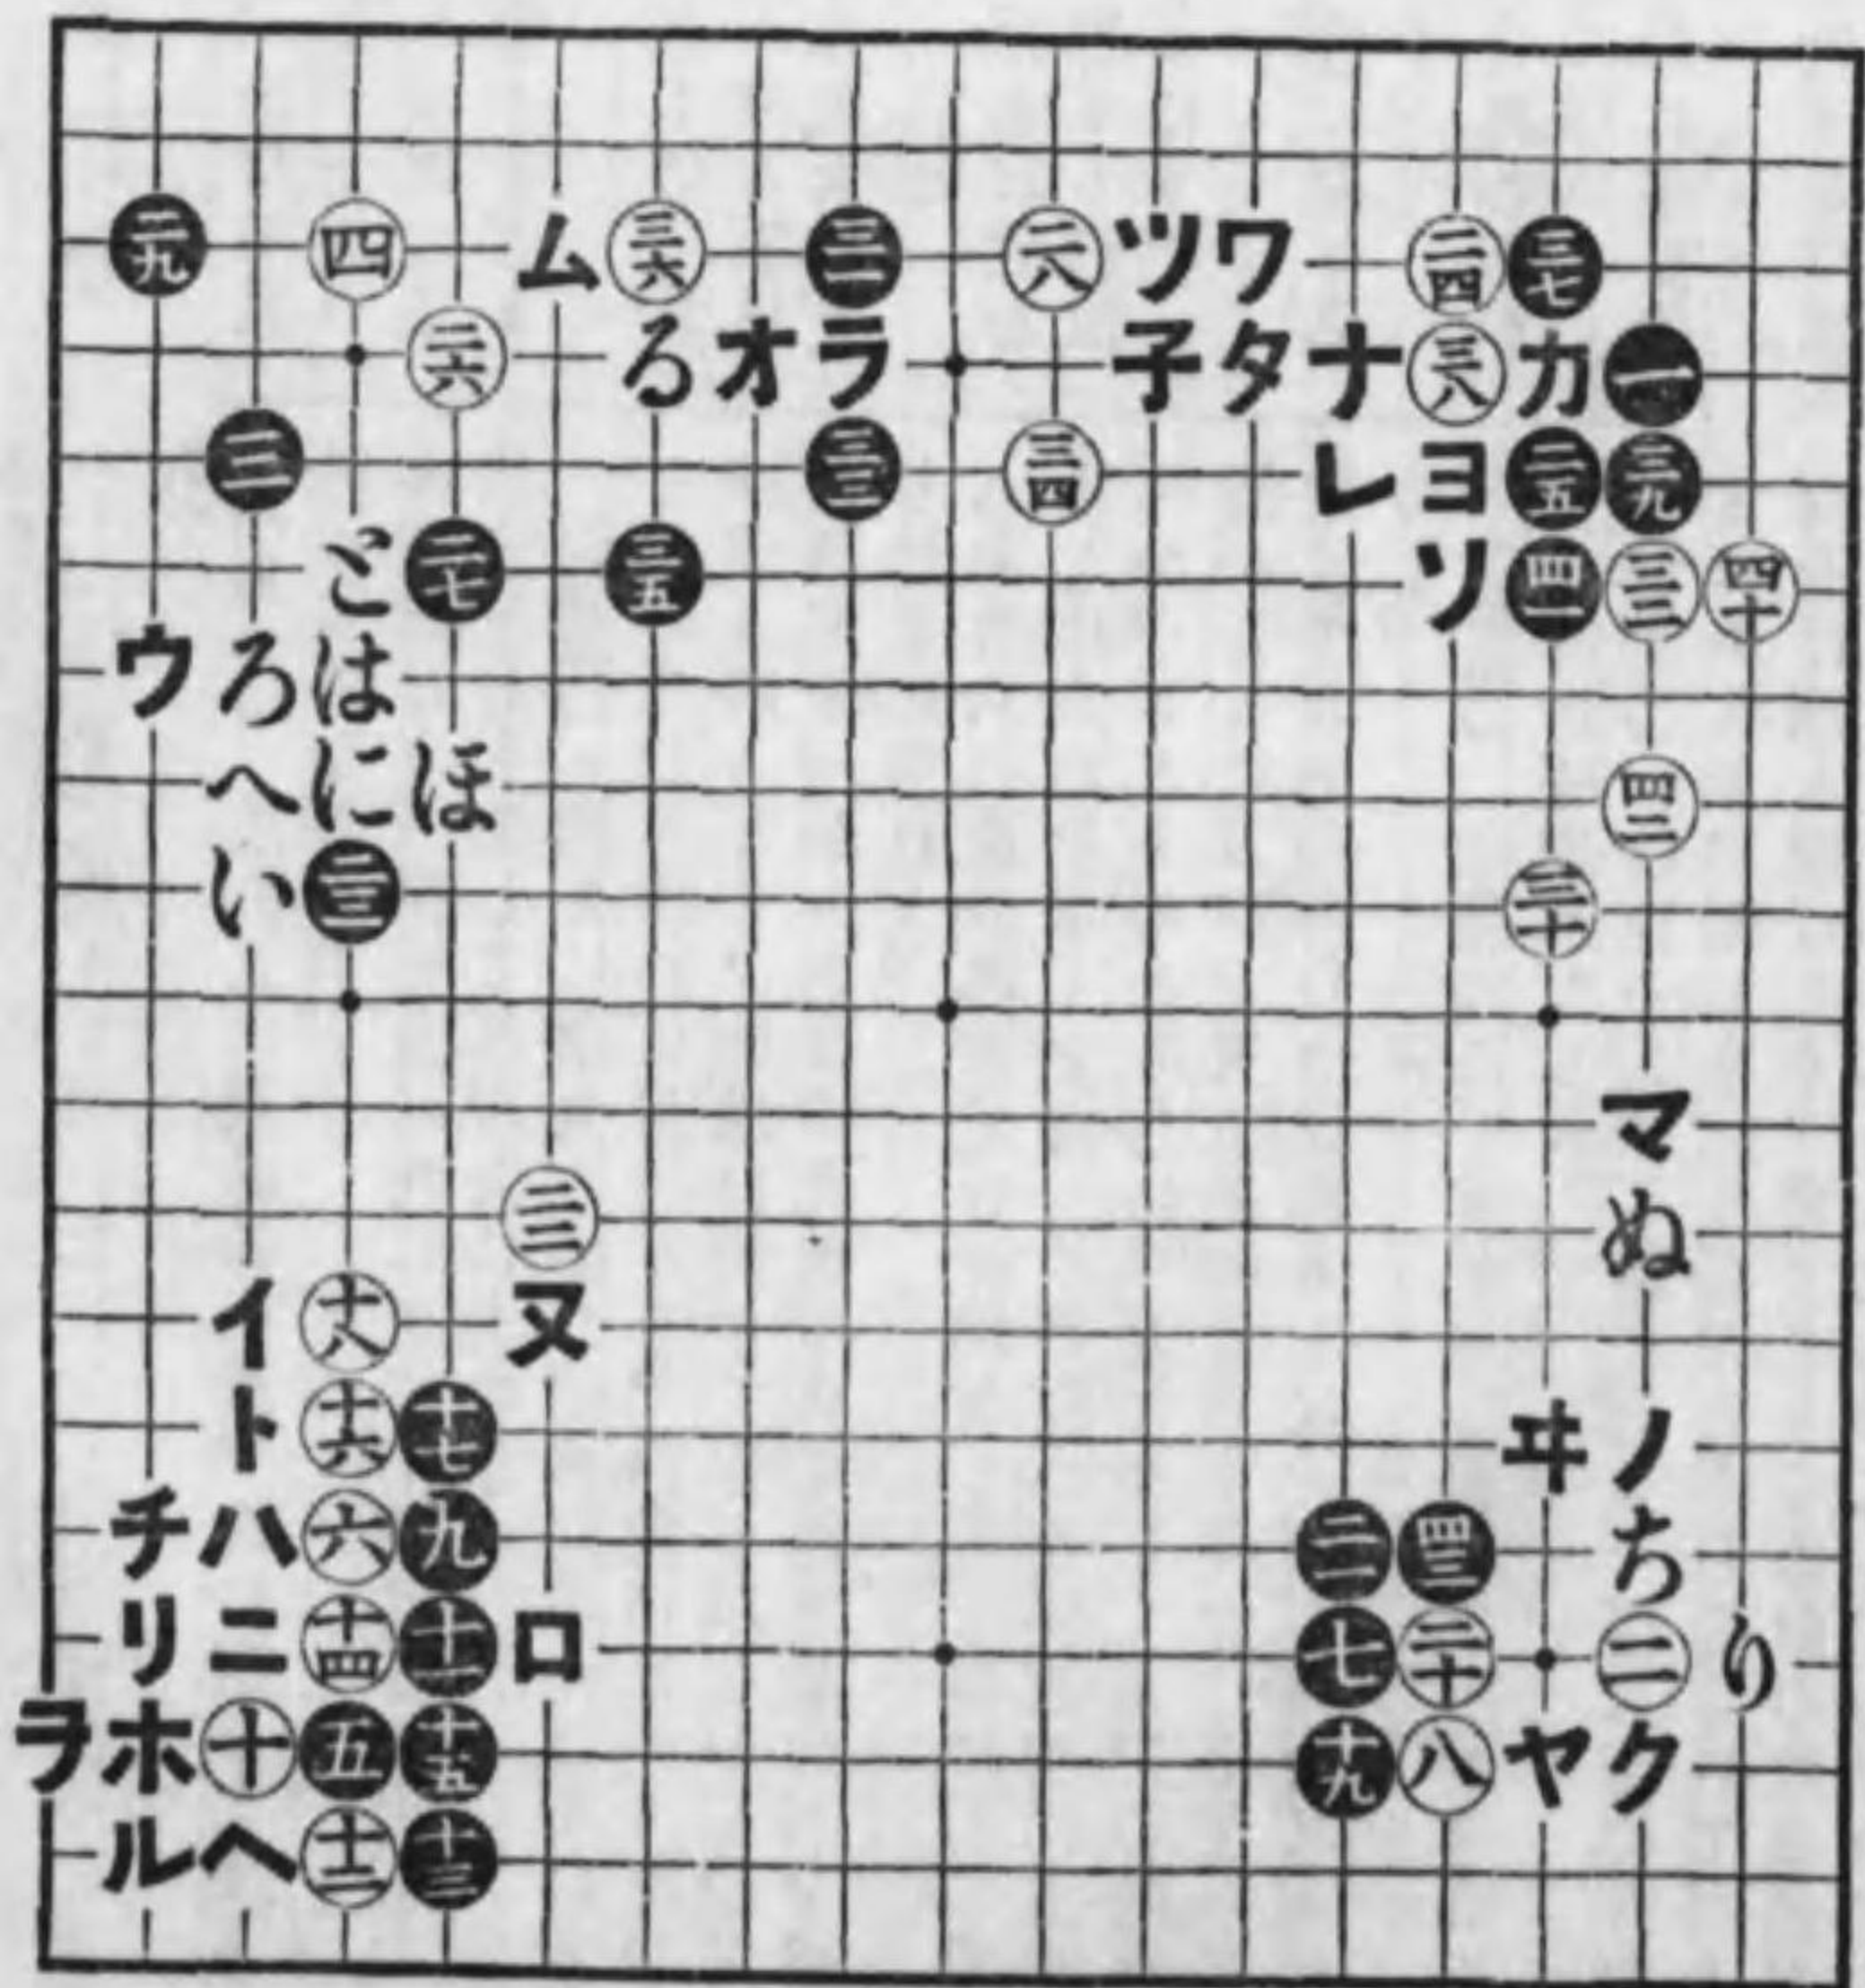 二九 四 ム 三六 三一 二八 ツ ワ 二四 三七
二六 る オ ラ 子 タ ナ 三八 カ 一
三 三三 三四 レ ヨ 二五 三九
ご 二七 三五 ソ 四一 三二 四十
ウ ろ は
へ に ほ 四二
い 二三 三十
マ
二二 ぬ
イ 十八 ヌ
ト 十六 十七 ヰ ノ
チ ハ 六 九 二一 四三 ち
リ ニ 十四 十一 ロ 七 二十 二 り
ヲ ホ 十 五 十五 十九 八 ヤ ク
ル ヘ 十二 十三